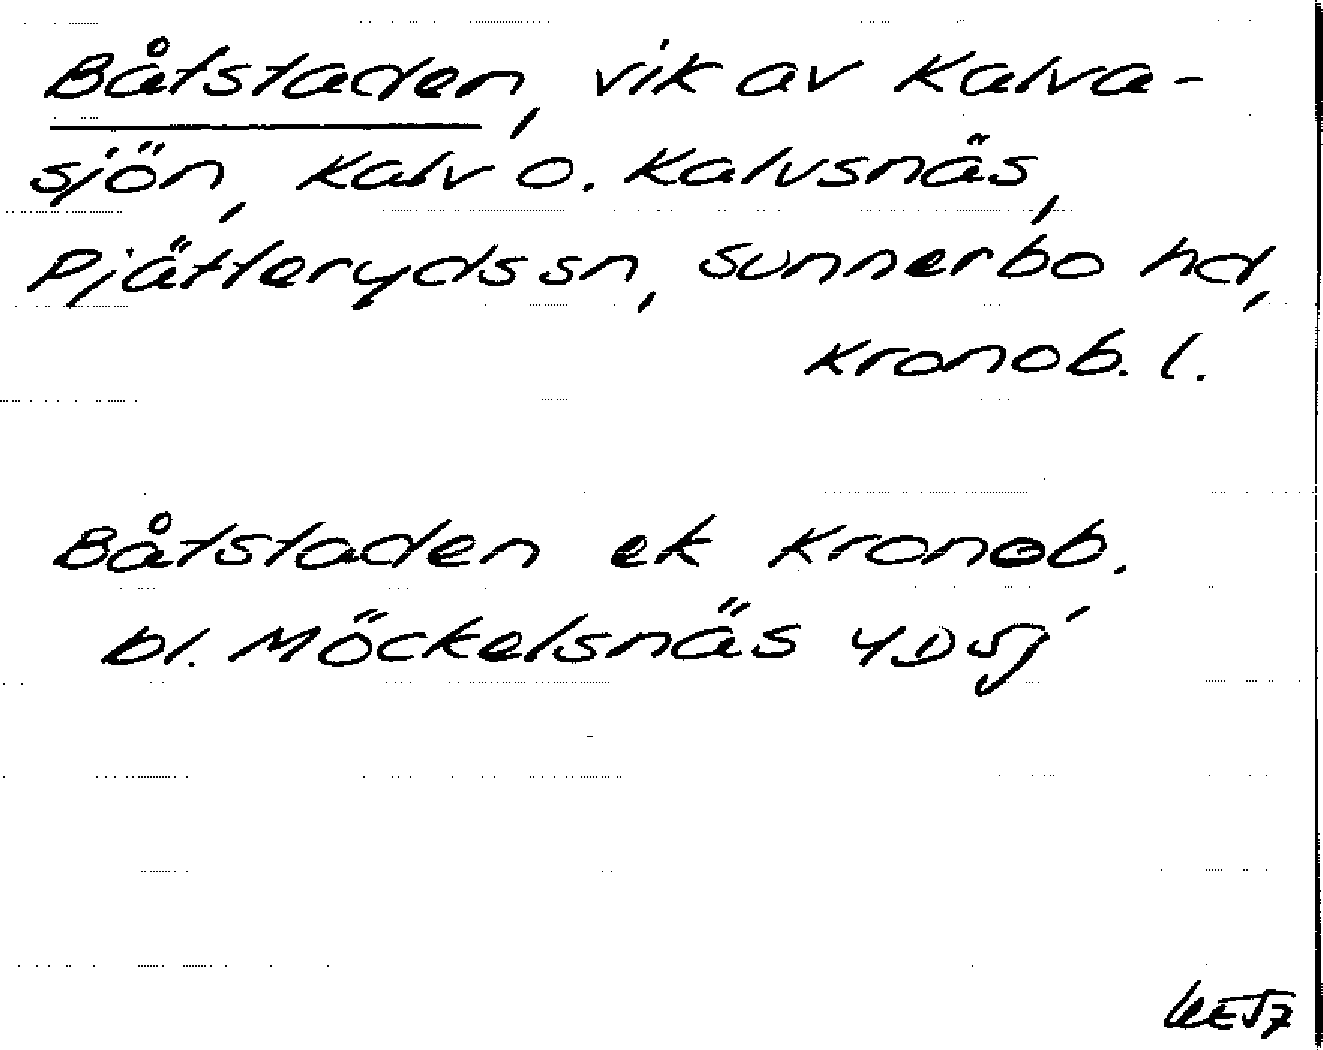 Båtstaden, vik av Kalva-
sjön, Kalv o. Kalvsnäs,
Pjätteryds sn, Sunnerbo hd,
Kronob. l.
Båtstaden ek Kronob.
bl. Möckelsnäs 4D